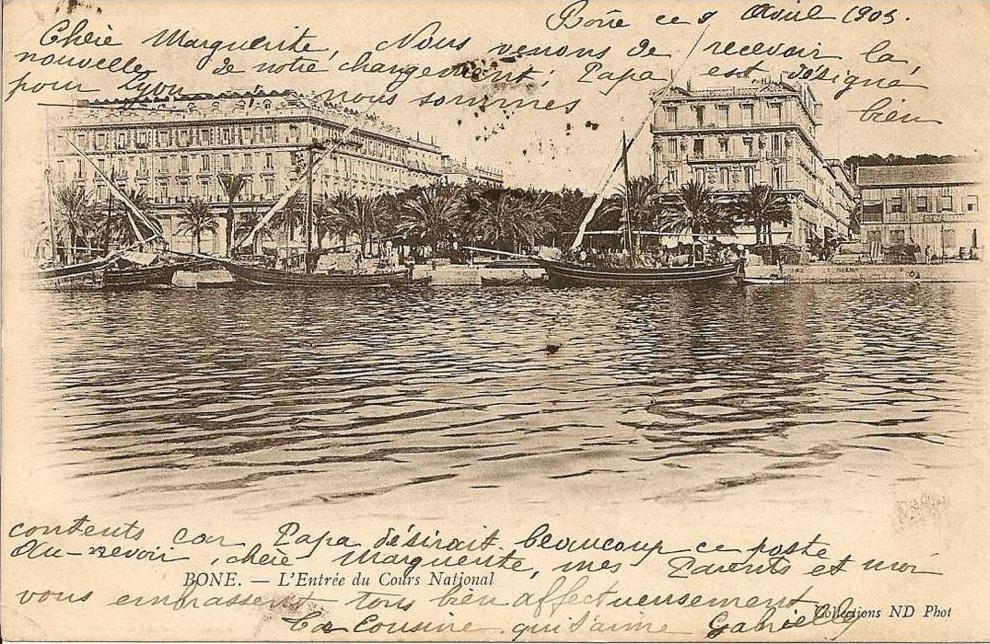 Bône ce 9 Avril 1903.
Chère Marguerite, Nous venons de recevoir la
nouvelle de notre changement; Papa est désigné
pour Lyon nous sommes bien
contents car Papa désirait beaucoup ce poste
Au-revoir, chère Marguerite, mes Parents et moi
BONE. — L'Entrée du Cours National
vous embrassent tous bien affectueusement
Collections ND Phot
Ta Cousine qui t'aime Gabrielle